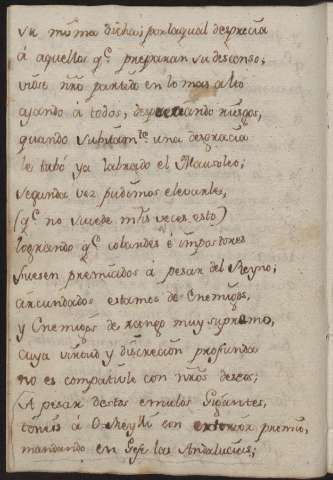 su misma dicha; por laqual desprecia
á aquellos q.^e preparan su descenso;
visteis nrõ partido en lo mas alto
ajando á todos, despreciando riesgos,
quando subitam.^te una desgracia
le tubó ya labrado el Mausoleo;
segunda vez pudimos elevarle,
(q.^e no sucede m.^s veces esto)
logrando q.^e cobardes é impostores
fuesen premiados á pesar del Reyno;
circundados estamos de Enemigos,
y Enemigos de rango muy supremo,
cuya virtud y discrecion profunda
no es compatible con nrõs deseos;
(A pesar destos emulos Gigantes,
teneis á O-Reylli con exterior premio,
mandando en Gefe las Andalucias;